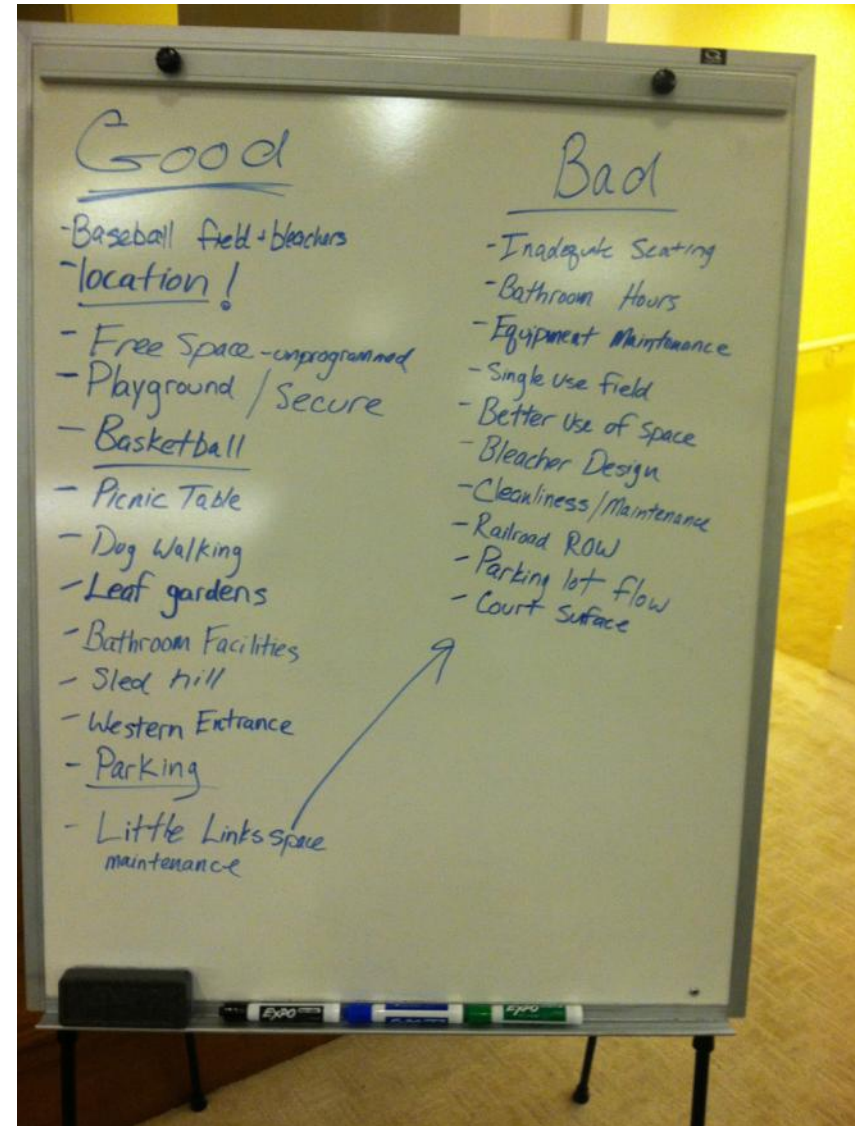 Good
- Baseball field + bleachers
- location!
- Free Space - unprogrammed
- Playground / Secure
- Basketball
- Picnic Table
- Dog Walking
- Leaf gardens
- Bathroom Facilities
- Sled hill
- Western Entrance
- Parking
- Little Links space
maintenance
Bad
- Inadequate Seating
- Bathroom Hours
- Equipment Maintenance
- Single use field
- Better use of space
- Bleacher Design
- Cleanliness/Maintenance
- Railroad ROW
- Parking lot flow
- Court Surface
EXPO
EXPO